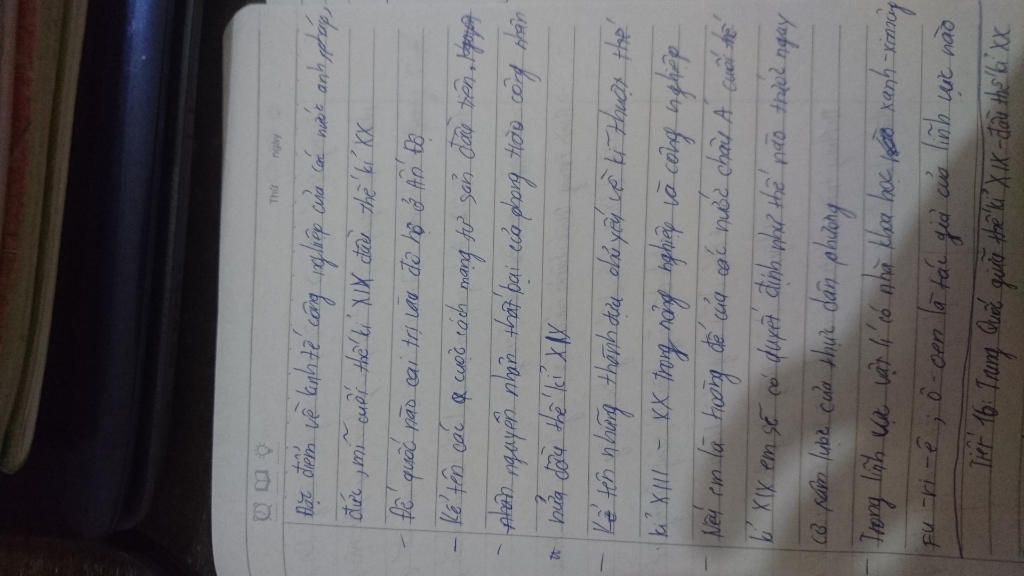 Thứ ngày
Đặc điểm về kinh tế công nghiệp của các nước anh, pháp,
đức, mĩ cuối thế kỉ XIX đầu thế kỉ XX
- Đế quốc nào cai trị và đô hộ ở Ấn Độ
- Kể tên các cuộc cách mạng tư sản đầu tiên
- nguyên nhân thất bại của phong trào công nhân
nửa đầu thế kỉ XIX
- Kể tên những thành tựu chủ yếu về kĩ thuật thế
kỉ XIII - XX trong nông nghiệp và công nghiệp
- Nếu em là hoàng đế của các nước châu Á cuối thế
kỉ XIX em sẽ có quyết định như thế nào trước nguy
cơ xâm lược của thực dân phương
- Trong lĩnh vực vật lí có nhà khoa học xanh-xi-mông
Fu-ri-ê; ô-oen là tác giả của lĩnh vực nào
Tiết 16: Trung Quốc giữa thế kỉ XIX-đầu thế kỉ XX